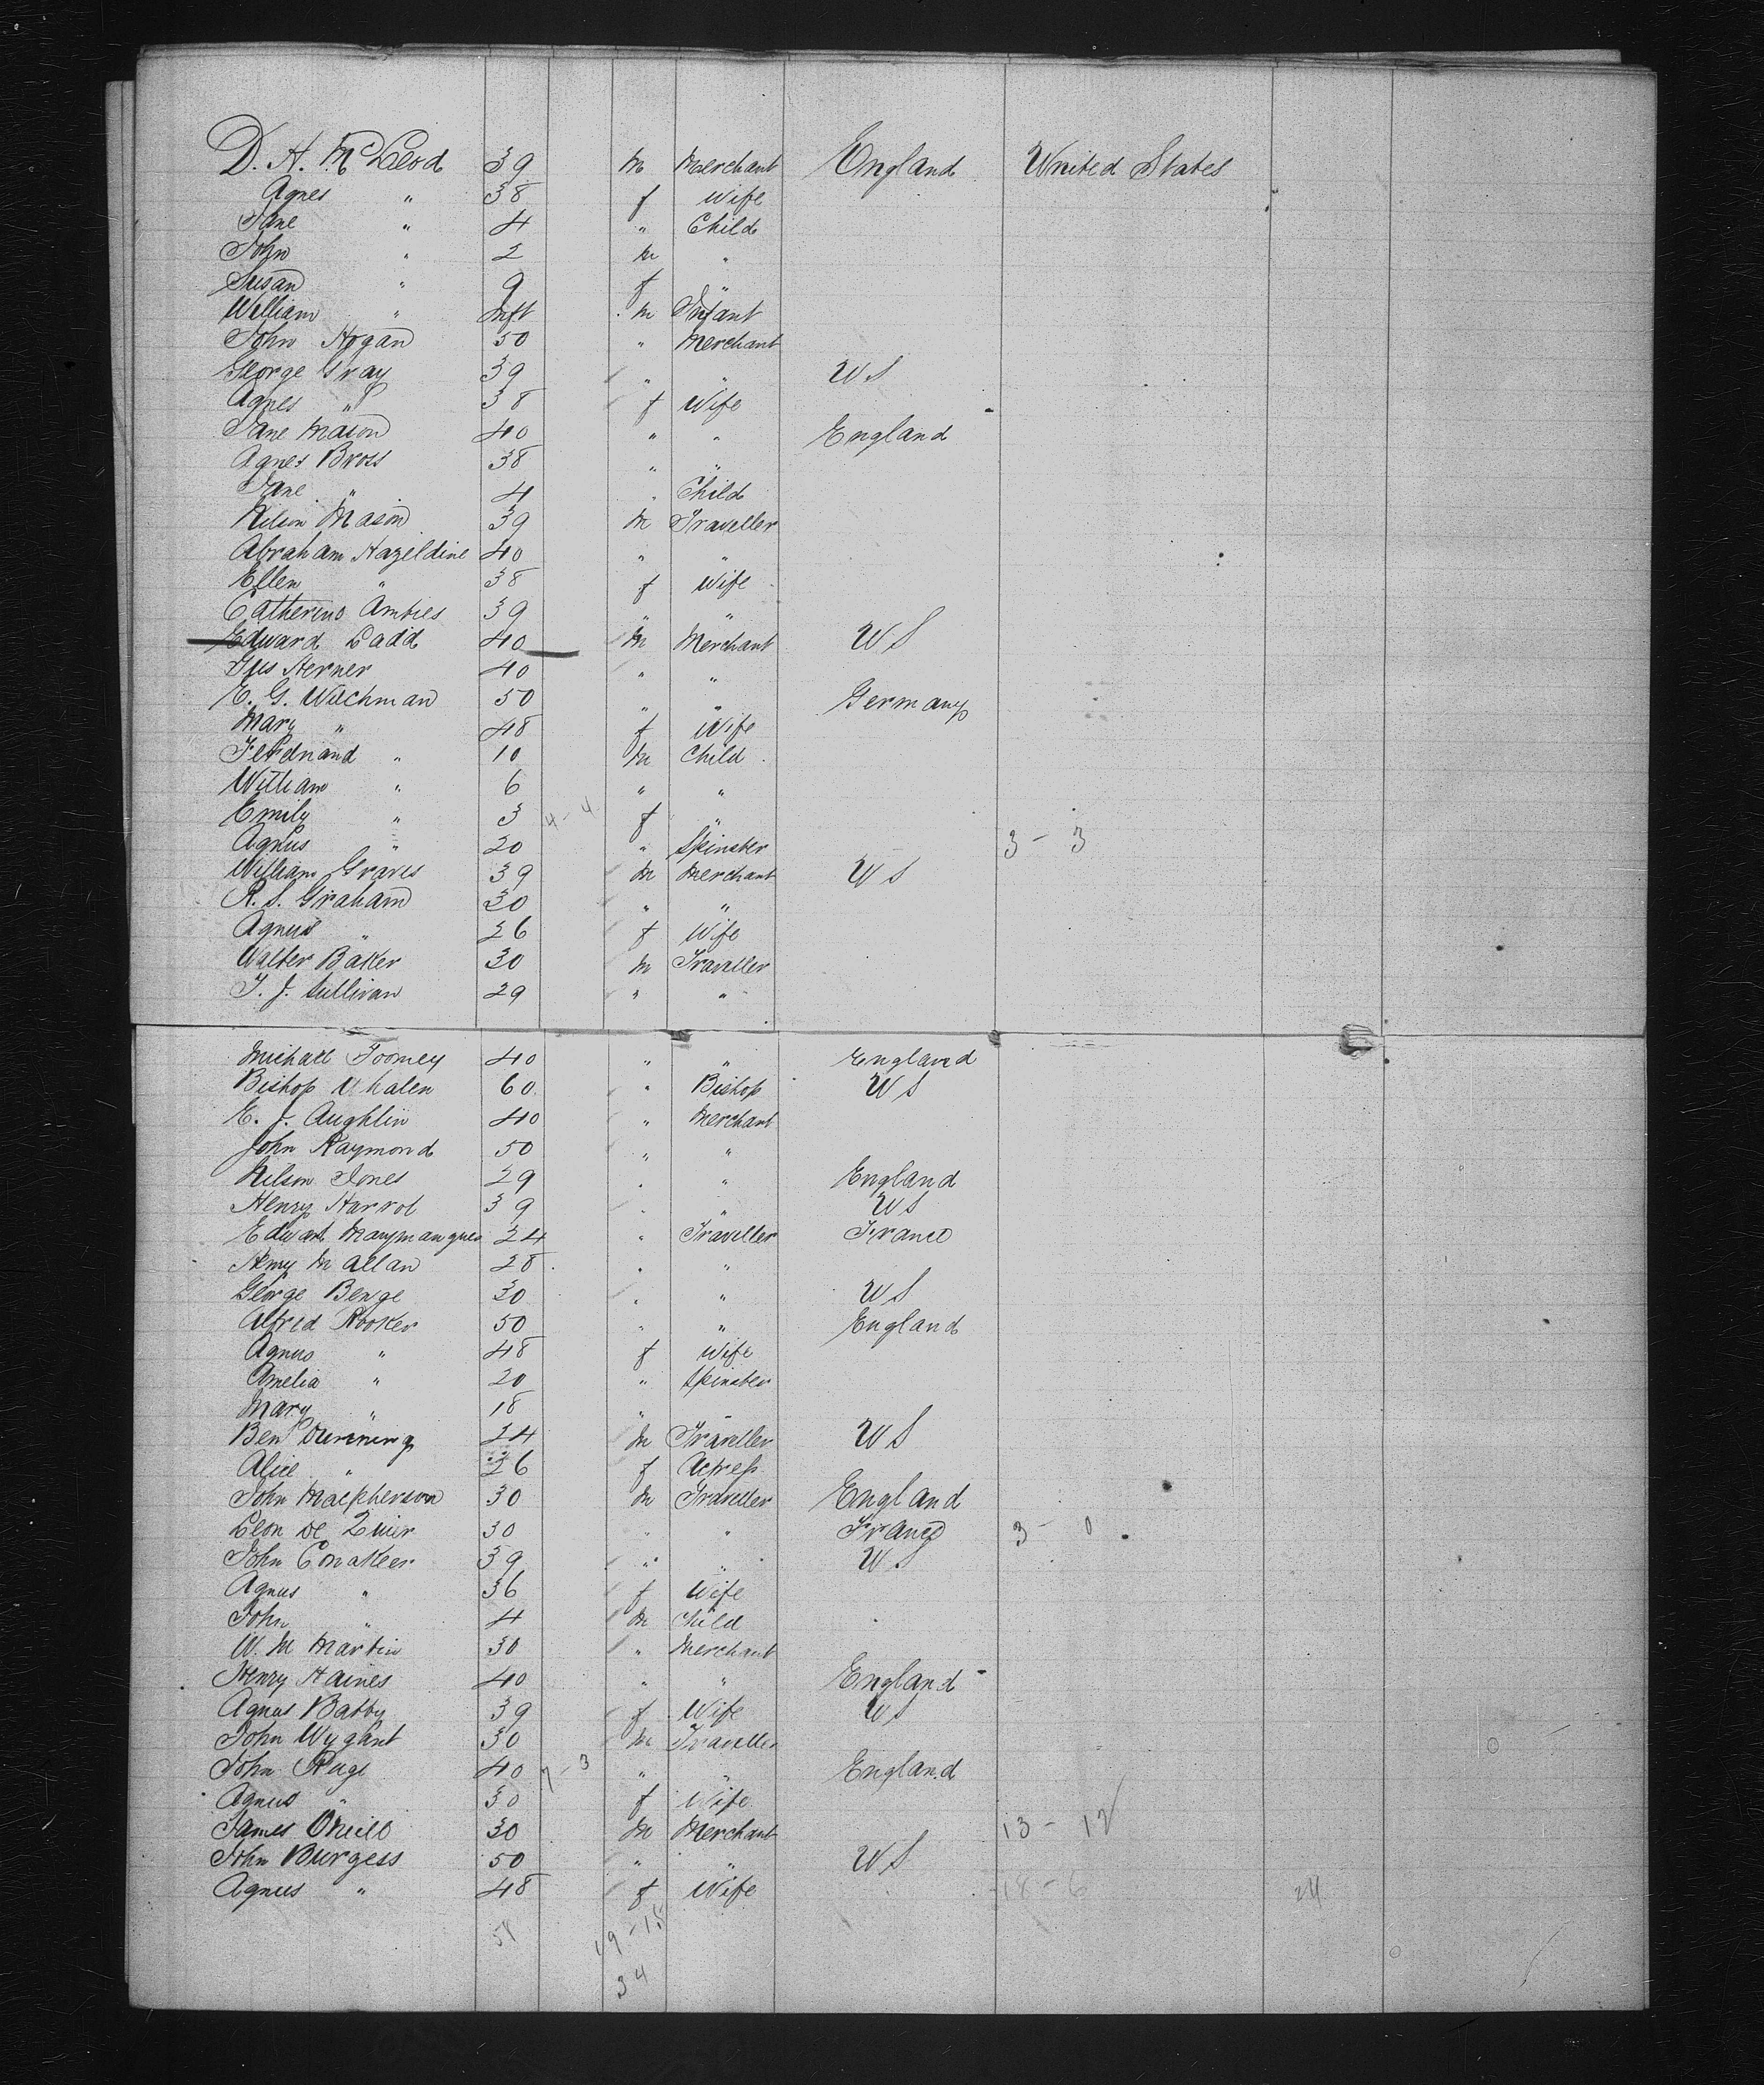 D. A. McLeod 39 m Merchant England United States
Agnes " 38 f Wife
Jane " 4 " Child
John " 2 m "
Susan " 9 f "
William " Inft m Infant
John Hogan 50 " Merchant
George Gray 39 " " US
Agnes " 38 f Wife
Jane Mason 40 " " England
Agnes Bross 38 " "
Jane " 4 " Child
Nelson Mason 39 m Traveller
Abraham Hazeldine 40 " "
Ellen " 38 f Wife
Catherine Ambies 39 " "
Edward Ladd 40 m Merchant US
Gus Herner 40 " "
E. G. Wiechman 50 " " Germany
Mary " 48 f Wife
Ferdnand " 10 m Child
William " 6 " "
Emily " 3 4-4 f "
Agnus " 20 " Spinster 3-3
William Graves 39 m Merchant US
R. S. Graham 30 " "
Agnus " 26 f Wife
Walter Baker 30 m Traveller
T. J. Sullivan 29 " "
Michael Toomey 40 " " England
Bishop Whalen 60 " Bishop US
E. J. Aughlin 40 " Merchant
John Raymond 50 " "
Nelson Jones 29 " " England
Henry Harrot 39 " " US
Edward 24 " Traveller France
Henry M Allan 28 " "
George Benge 30 " " US
Alfred Rooker 50 " " England
Agnus " 48 f Wife
Amelia " 20 " Spinster
Mary " 18 "
Ben Dunning 24 m Traveller US
Alice " 26 f Actress
John Macpherson 30 m Traveller England
Leon De 30 " " France 3-0
John Conakeer 39 " " US
Agnus " 36 f Wife
John " 4 m Child
W. M Martin 30 " Merchant
Henry Haines 40 " " England
Agnus Batby 39 f Wife US
John Wyghnt 30 m Traveller
John Page 40 7-3 " " England
Agnus " 30 f Wife
James Oneill 30 m Merchant 13-12
John Burgess 50 " " US
Agnus " 48 f Wife 18-6 24
58 19-15
34